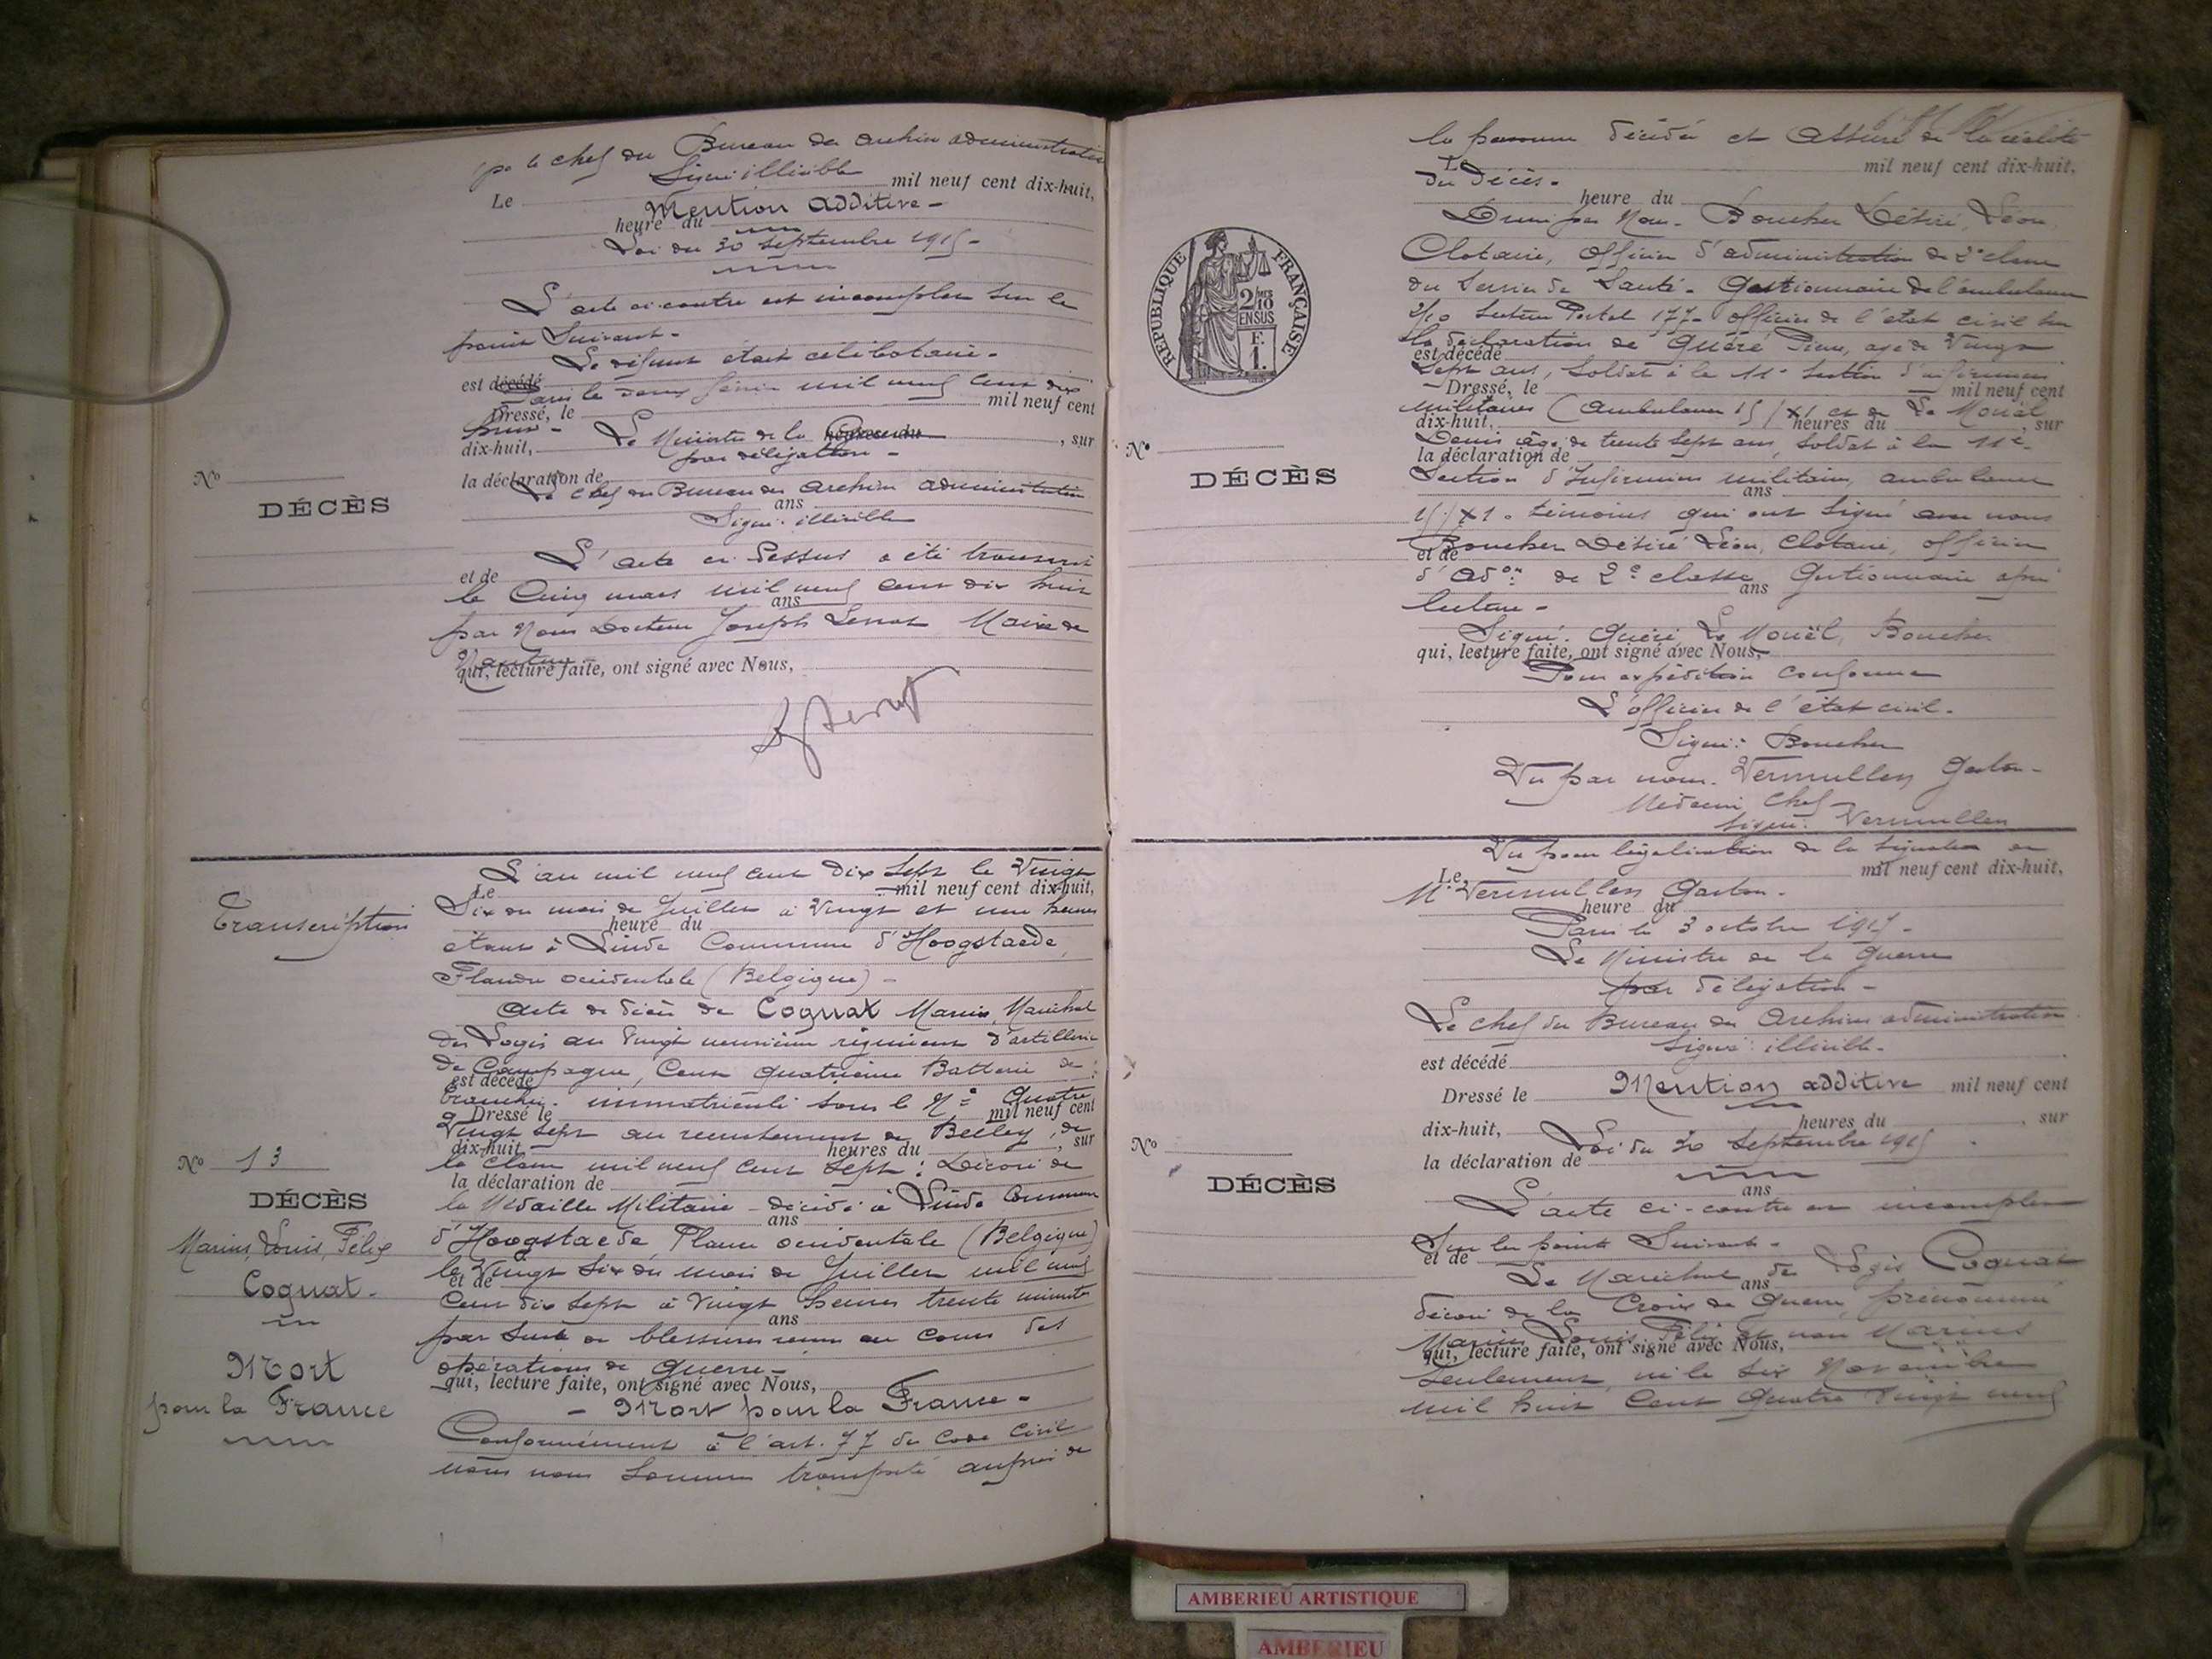 po le chef du Bureau des archives administratives
Signé illisible
Le mil neuf cent dix-huit,
Mention additive -
heure du
Loi du 30 septembre 1915 -
L'acte ci-contre est incomplet sur le
point Suivant -
Le défunt était célibataire -
est décédé
Paris le deux février mil neuf cent dix
Dressé, le mil neuf cent
huit -
Le Ministre de la Guerre
dix-huit, heures du , sur
par délégation -
la déclaration de
Le chef du Bureau des archives administratives
ans
Signé : illisible
L'acte ci-dessus a été transcrit
et de
le Cinq mars mil neuf cent dix huit
ans
par Nous Docteur Joseph Maire de
qui, lecture faite, ont signé avec Nous,
No
DÉCÈS
L'an mil neuf cent dix Sept le Vingt
Le mil neuf cent dix-huit,
Transcription
Six du mois de Juillet à Vingt et une heures
heure du
étant à Linde Commune d'Hoogstaede,
Flandre occidentale (Belgique) -
Acte de décès de Cognat Marius, Maréchal
des Logis au Vingt neuvième régiment d'artillerie
de Campagne, Cent quatrième Batterie de
est décédé
tranchée. immatriculé sous le No Quatre
Dressé le mil neuf cent
Vingt Sept au recrutement de Belley, de
dix-huit heures du sur
la classe mil neuf cent Sept : Décoré de
la déclaration de
la Médaille Militaire - décédé à Linde Commune
ans
d'Hoogstaede, Flandre occidentale (Belgique)
le Vingt Six du mois de Juillet mil neuf
et de
Cent dix Sept à Vingt heures trente minutes
ans
par suite de blessures reçues au cours des
opérations de Guerre -
qui, lecture faite, ont signé avec Nous,
- Mort pour la France -
Conformément à l'art. 77 du Code Civil
nous nous sommes transporté auprès de
No 13
DÉCÈS
Marius, Louis, Félix
Cognat -
Mort
pour la France
la personne décédée et assuré de la réalité
Le mil neuf cent dix-huit,
du Décès -
heure du
Dressé par Nous - Boucher Désiré, Léon,
Clotaire, officier d'administration de 2e classe
du Service de Santé - Gestionnaire de l'ambulance
2/10 Secteur Postal 177 - officier de l'état civil sur
la déclaration de Quéré Pierre, agé de Vingt
est décédé
Sept ans, soldat à la 11e Section d'infirmiers
Dressé, le mil neuf cent
militaires (ambulance 15/XI et de Le Mouël
dix-huit, heures du , sur
Denis âgé de trente Sept ans, Soldat à la 11e
la déclaration de
Section d'Infirmiers militaires, ambulance
ans
15/XI. témoins qui ont signé avec nous
Boucher Désiré Léon, Clotaire, officier
et de
d'Adon de 2e classe Gestionnaire après
ans
lecture -
Signé : Quéré, Le Mouël, Boucher
qui, lecture faite, ont signé avec Nous,
Pour expédition conforme
L'officier de l'état civil.
Signé : Boucher
Vu par nous. Vermullen Gaston -
Médecin Chef -
Signé : Vermullen
RÉPUBLIQUE FRANÇAISE
2/10MES
EN SUS
F.
1.
No
DÉCÈS
Vu pour légalisation de la signature de
Le mil neuf cent dix-huit,
Mr Vermullen Gaston -
heure du
Paris le 3 octobre 1917 -
Le Ministre de la Guerre
par délégation -
Le chef du Bureau des Archives administratives
Signé : illisible -
est décédé
Mention additive
Dressé le mil neuf cent
dix-huit, heures du , sur
Loi du 30 Septembre 1915
la déclaration de
ans
L'acte ci-contre est incomplet
Sur les points Suivants -
et de
Le Maréchal des Logis Cognat
ans
décoré de la Croix de Guerre, prénommé
Marius Louis Félix et non Marius
qui, lecture faite, ont signé avec Nous,
Seulement, né le six Novembre
mil huit Cent Quatre Vingt neuf
No
DÉCÈS
AMBERIEU ARTISTIQUE
AMBERIEU